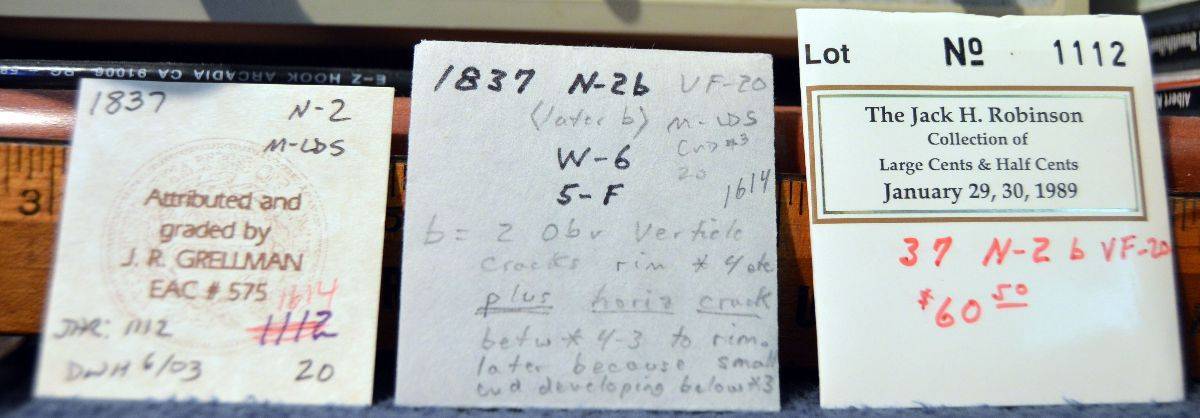 E-Z HOOK ARCADIA CA 91006
1837
N-2
M-LDS
Attributed and
graded by
J. R. GRELLMAN
EAC # 575
1614
JHR: 1112
1112
DWH 6/03
20
3
1837 N-2b VF-20
(later b) M-LDS
CUD *3
W-6
20
5-F
1614
b = 2 Obv Verticle
cracks rim * 4 etc
plus horiz crack
betw * 4-3 to rim.
later because small
cud developing below *3
Lot No 1112
The Jack H. Robinson
Collection of
Large Cents & Half Cents
January 29, 30, 1989
37 N-2 b VF-20
$60 50
Albert